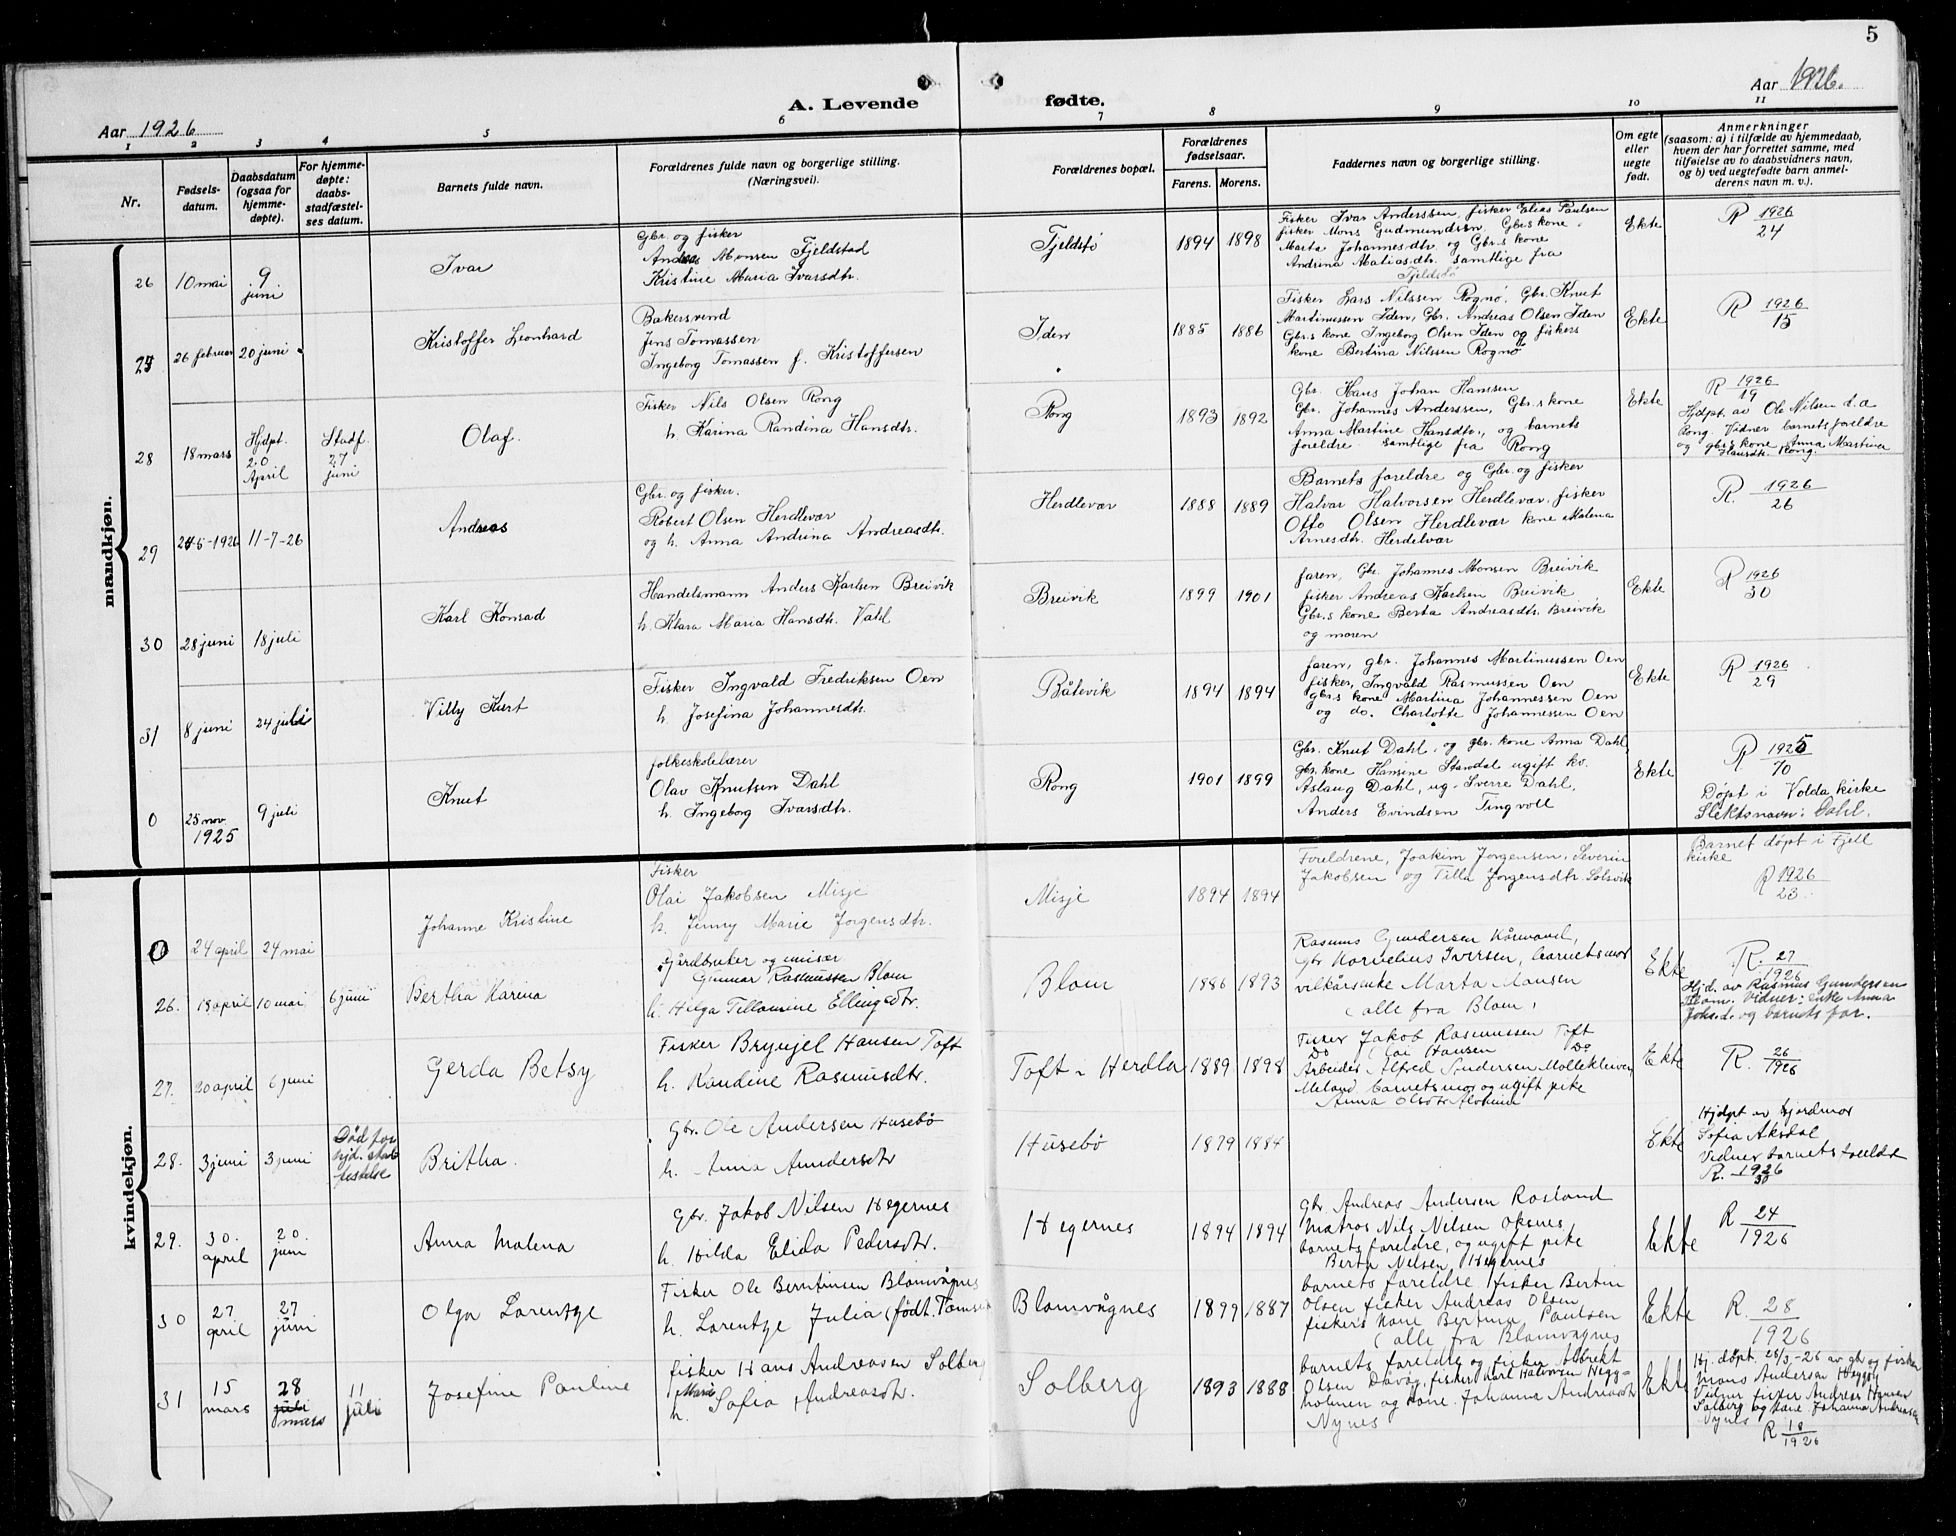 5
A. Levende fødte.
Aar 1926
Aar 1926.
1 2 3 4 5 6 7 8 9 10 11
Nr.
Fødsels-
datum.
Daabsdatum
(ogsaa for
hjemme-
døpte).
For hjemme-
døpte:
daabs-
stadfæstel-
ses datum.
Barnets fulde navn.
Forældrenes fulde navn og borgerlige stilling.
(Næringsvei).
Forældrenes bopæl.
Forældrenes
fødselsaar.
Farens. Morens.
Faddernes navn og borgerlige stilling.
Om egte
eller
uegte
født.
Anmerkninger
(saasom: a) i tilfælde av hjemmedaab,
hvem der har forrettet samme, med
tilføielse av to daabsvidners navn,
og b) ved uegtefødte barn anmel-
derens navn m. v.).
mandkjøn.
26
10 mai
9
juni
Ivar
Gbr. og fisker
Andreas Monsen Fjeldstad
Kristine Maria Ivarsdtr.
Fjeldstø
1894 1898
Fisker Ivar Anderssen, fisker Elias Paulsen
fisker Mons Gudmundsen, Gbrs kone
Marta Johannesdtr. og Gbr.s kone
Andrina Matiasdtr. samtlige fra
Fjeldstø
Ekte
R 1926
24
27
26 februar
20 juni
Kristoffer Leonhard
Bakersvend
Jens Tomassen
Ingeborg Tomassen f. Kristoffersen
Iden
1885 1886
Fisker Lars Nilssen Rognø, Gbr. Knut
Martinussen Iden, Gbr. Andreas Olsen Iden
Gbr.s kone Ingeborg Olsen Iden og fiskers
kone Bertina Nilssen Rognø
Ekte
R 1926
15
28
18 mars
Hjdpt.
20
April
Stadf.
27
juni
Olaf.
Fisker Nils Olsen Rong
h. Karina Randina Hansdtr.
Rong
1893 1892
Gbr. Hans Johan Hanssen
Gbr. Johannes Anderssen, Gbr.s kone
Anna Martine Hansdtr., og barnets
foreldre samtlige fra Rong
Ekte
R 1926
19
Hjdpt. av Ole Nilsen d.a
Rong. Vidner barnets foreldre
og gbr.s kone Anna Martina
Hansdtr. Rong.
29
24-5-1926
11-7-26
Andreas
Gbr. og fisker.
Robert Olsen Herdlevær
og h. Anna Andrina Andreasdtr.
Herdlevær
1888 1889
Barnets foreldre og Gbr. og fisker
Halvar Halvorsen Herdlevær, fisker
Otto Olsen Herdlevær kone Malena
Arnesdtr. Herdelvær
R. 1926
26
30
28 juni
18 juli
Karl Konrad
Handelsmann Anders Karlsen Breivik
h. Klara Maria Hansdtr. Vahl
Breivik
1899 1901
faren, Gbr. Johannes Monsen Breivik
fisker Andreas Karlsen Breivik
Gbr.s kone Berta Andreasdtr. Breivik
og moren
Ekte
R 1926
30
31
8 juni
24 juli
Villy Kurt
Fisker Ingvald Fredriksen Oen
h. Josefina Johannesdtr.
Båtevik
1894 1894
faren, gbr. Johannes Martinussen Oen
fisker, Ingvald Rasmussen Oen
gbr.s kone Martina Johannessen Oen
og do. Charlotte Johannessen Oen
Ekte
R 1926
29
0
25 nov.
1925
9 juli
Knut
folkeskolelærer
Olav Knutsen Dahl
h. Ingeborg Ivarsdtr.
Rong
1901 1899
Gbr. Knut Dahl, og gbr. kone Anna Dahl,
gbr. kone Hansine Standal ugift kv.
Aslaug Dahl, ug. Sverre Dahl,
Anders Evindsen Tingvoll
Ekte
R 1925
70
Døpt i Volda kirke
Slektsnavn: Dahl.
kvindekjøn.
0
24 april
24 mai
Johanne Kristine
Fisker
Olai Jakobsen Misje
h. Jenny Marie Jorgensdtr.
Misje
1894 1894
Foreldrene, Joakim Jorgensen, Severin
Jakobsen og Tilla Jorgensdtr. Solsvik
Barnet døpt i Fjell
kirke
R 1926
23.
26.
18 april
10 mai
6 juni
Bertha Karina
Gårdbruker og
Gunnar Rasmussen Blom
h. Helga Tillomine Ellingsdtr.
Blom
1886 1893
Rasmus Gundersen
Gbr Kornelius Iversen, barnets mor
vilkårsenke Marta Mansen
(alle fra Blom,
Ekte
R. 27
1926
Hjd. av Rasmus Gundersen
Blom. Vidner: enke Anna
og barnets far.
27.
20 april
6 juni
Gerda Betsy
Fisker Brynjel Hansen Toft
h. Randine Rasmusdtr.
Toft - Herdla
1889 1898
Fisker Jakob Rasmussen Toft
Do Olai Hansen Do
Arbeider Alfred Sundersen Mollekleiven
Meland barnets mor og ugift pike
Anna Olsdtr
Ekte
R. 26
1926
28.
3 juni
3 juni
Død for
hjd. stad
festelse
Britha.
Gbr. Ole Andersen Husebø
h. Anna Andersdtr
Husebø
1879 1884
Ekte
Hjdpt av Gjordmor
Sofia Aksdal
Vidner barnets foreldre
R. 1926
30
29.
30.
april
20.
juni
Anna Malena
Gbr. Jakob Nilsen Hegernes
h. Hilda Elida Pedersdtr.
Hegernes
1894 1894
Gbr. Andreas Andersen Rosland
Matros Nils Nilsen Oksnes
barnets foreldre, og ugift pike
Berta Nelsen, Hegernes
Ekte
R 24
1926
30
27
april
27
juni
Olga Lorentze
Fisker Ole Berntinsen Blomvågnes
h. Lorentze Julia (født.
Blomvågnes
1899 1887
barnets foreldre fisker Bertin
Olsen fisker Andreas Olsen
fiskers kone Bertina Paulsen
(alle fra Blomvågnes
Ekte
R. 28
1926
31
15
mars
28
juli
mars
11
juli
Josefine Pauline
fisker Hans Andreasen Solberg
h. Maria Sofia Andreasdtr.
Solberg
1893 1888
barnets foreldre og fisker Albrekt
Olsen Dåvøy, fisker Karl Halvorsen Hegg-
holmen og kone Johanna Andreasdtr
Nynes
Ekte
Hj. døpt. 28/3-26 av gbr og fisker
Mons Andersen Heggøy
Vidner fisker Andreas Hansen
Solberg og kone Johanna Andreasdtr
Nynes
R 18
1926